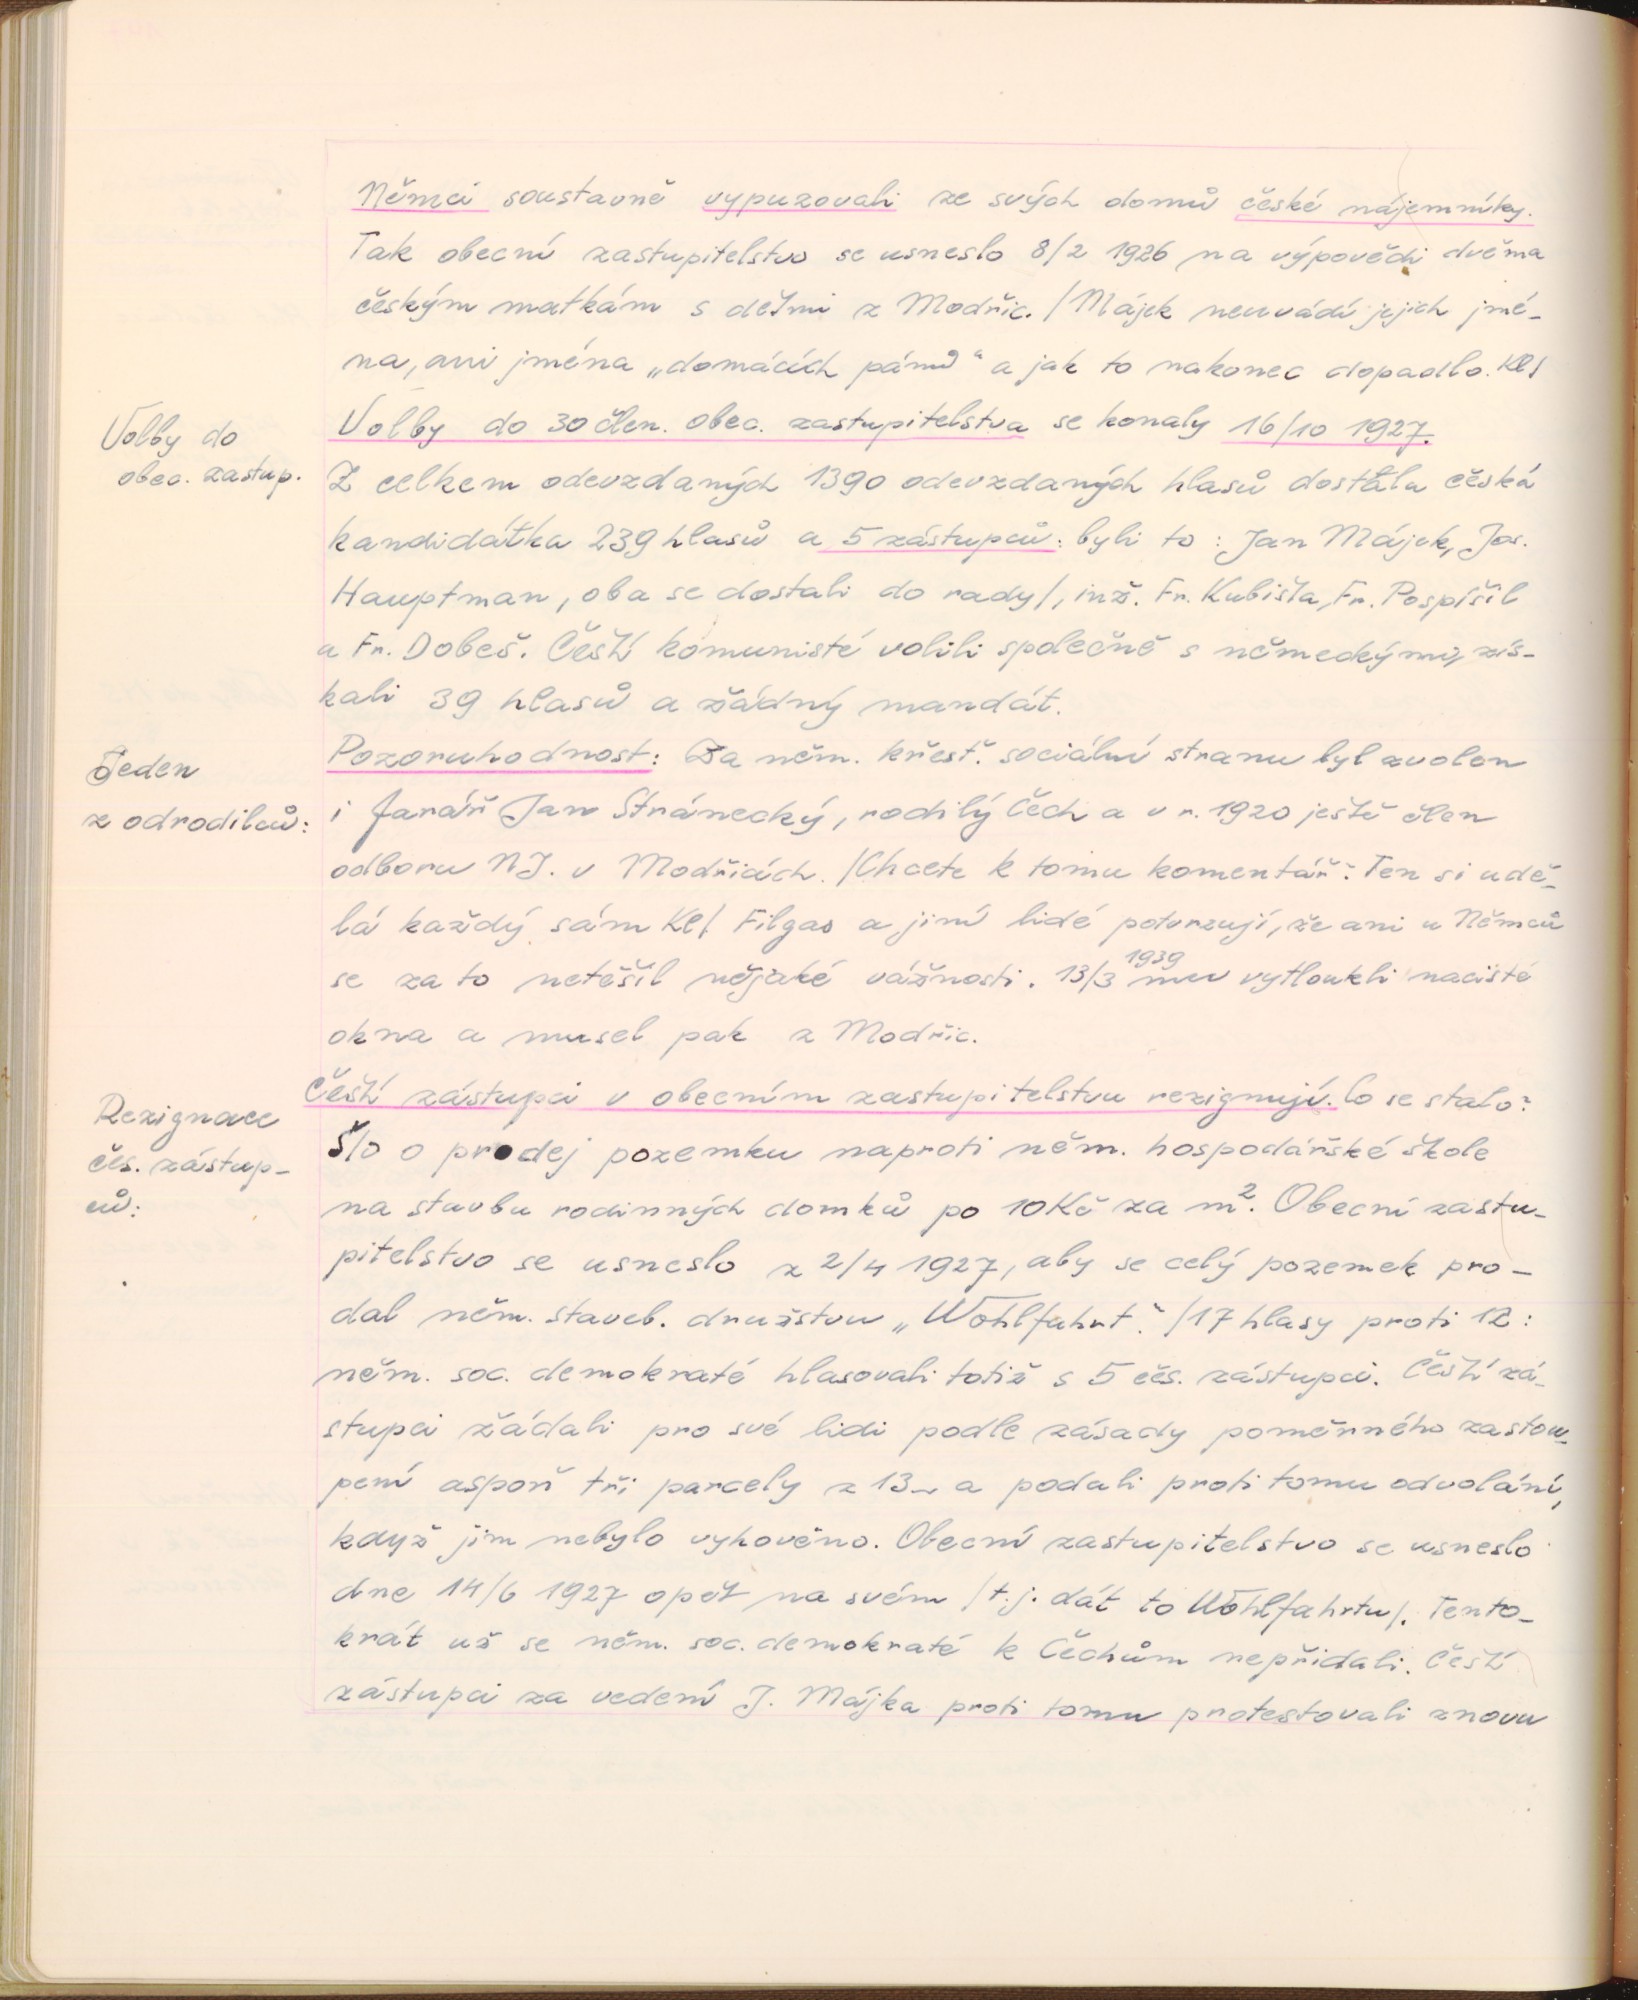 Němci soustavně vypuzovali ze svých domů české nájemníky.
Tak obecní zastupitelstvo se usneslo 8/2 1926 na výpovědi dvěma
českým matkám s dětmi z Modřic. /Májek neuvádí jejich jmé-
na, ani jména „domácích pánů“ a jak to nakonec dopadlo. Kl/
Volby do
obec. zastup.
Volby do 30 člen. obec. zastupitelstva se konaly 16/10 1927.
Z celkem odevzdaných 1390 odevzdaných hlasů dostala česká
kandidátka 239 hlasů a 5 zástupců: byli to: Jan Májek, Jos.
Hauptman, oba se dostali do rady/, inž. Fr. Kubišta, Fr. Pospíšil
a Fr. Dobeš. Čeští komunisté volili společně s německými, zís-
kali 39 hlasů a žádný mandát.
Jeden
z odrodilců:
Pozoruhodnost: Za něm. křesť. sociální stranu byl zvolen
i farář Jan Stránecký, rodilý Čech a v r. 1920 ještě člen
odboru NJ. v Modřicích. /Chcete k tomu komentář? Ten si udě-
lá každý sám Kl/ Filgas a jiní lidé potvrzují, že ani u Němců
se za to netěšil nějaké vážnosti. 13/3 1939 mu vytloukli nacisté
okna a musel pak z Modřic.
Rezignace
čes. zástup-
ců:
Čeští zástupci v obecním zastupitelstvu rezignují. Co se stalo?
Šlo o prodej pozemku naproti něm. hospodářské škole
na stavbu rodinných domků po 10 Kč za m². Obecní zastu-
pitelstvo se usneslo z 2/4 1927, aby se celý pozemek pro-
dal něm. staveb. družstvu „Wohlfahrt.“ /17 hlasy proti 12:
něm. soc. demokraté hlasovali totiž s 5 čes. zástupci. Čeští zá-
stupci žádali pro své lidi podle zásady poměrného zastou-
pení aspoň tři parcely z 13 a podali proti tomu odvolání,
když jim nebylo vyhověno. Obecní zastupitelstvo se usneslo
dne 14/6 1927 opět na svém /t.j. dát to Wohlfahrtu/. Tento-
krát už se něm. soc. demokraté k Čechům nepřidali. Čeští
zástupci za vedení J. Májka proti tomu protestovali znovu